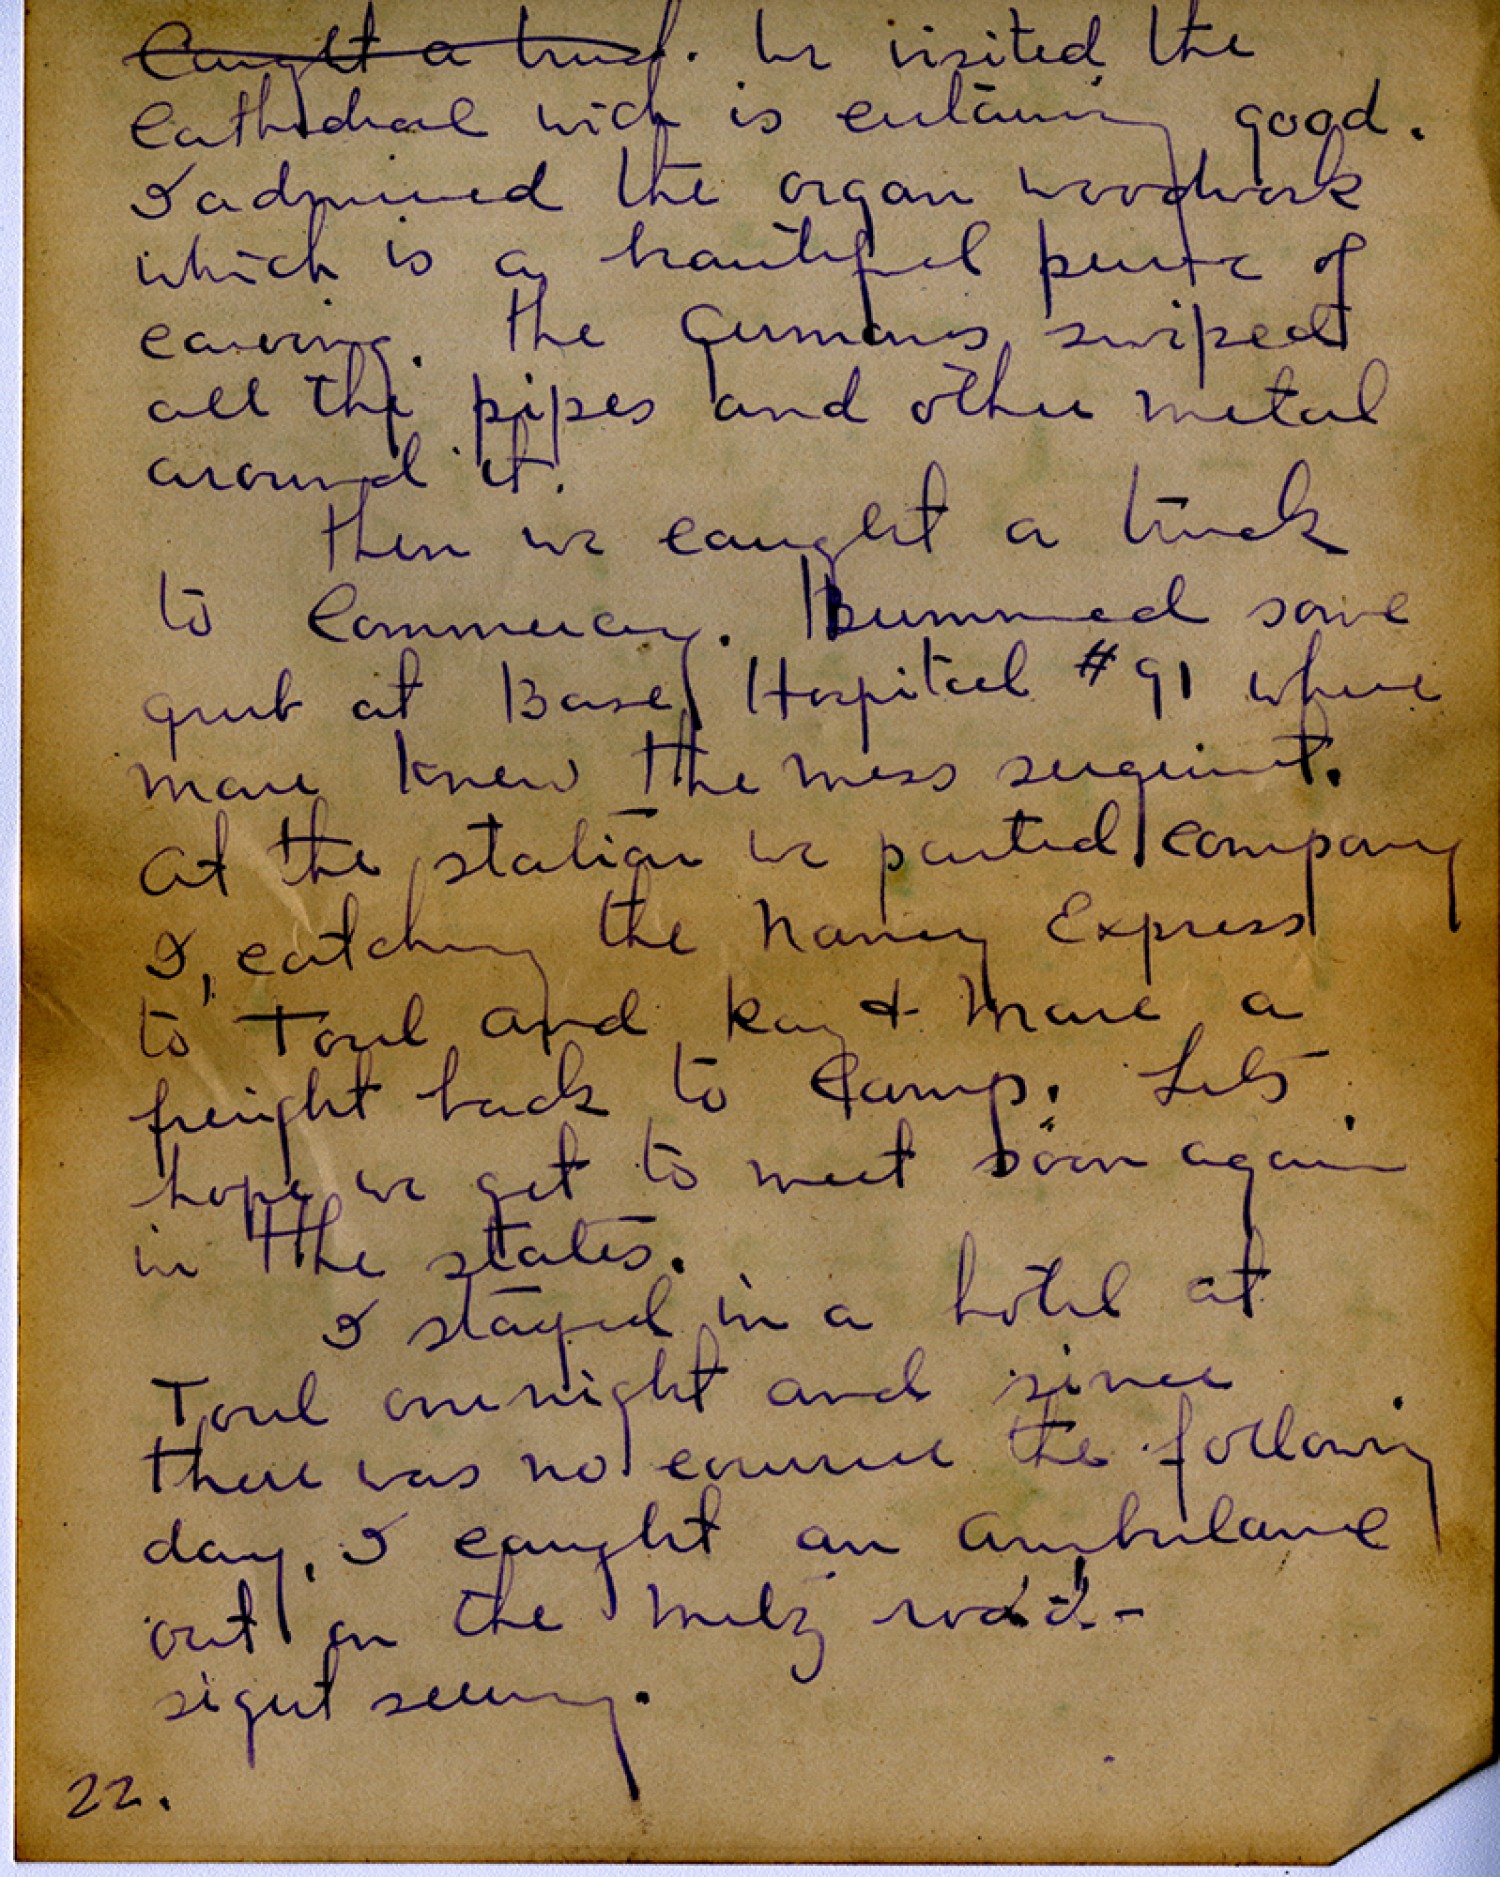 Caught a truck. We visited the
Cathedral wich is certainly good.
I admired the organ woodwork
which is a beautiful piece of
carving. The Germans swiped
all the pipes and other metal
around it.
Then we caught a truck
to Commercy. Bummed some
grub at Base Hospital #91 where
Mare knew the mess sergeant.
At the station we parted company
I, catching the Nancy Express
to Toul and Kay & Mare a
freight back to Camp. Lets
hope we get to meet soon again
in the states.
I stayed in a hotel at
Toul one night and since
there was no the following
day, I caught an ambulance
out on the Metz road -
sight seeing.
22.